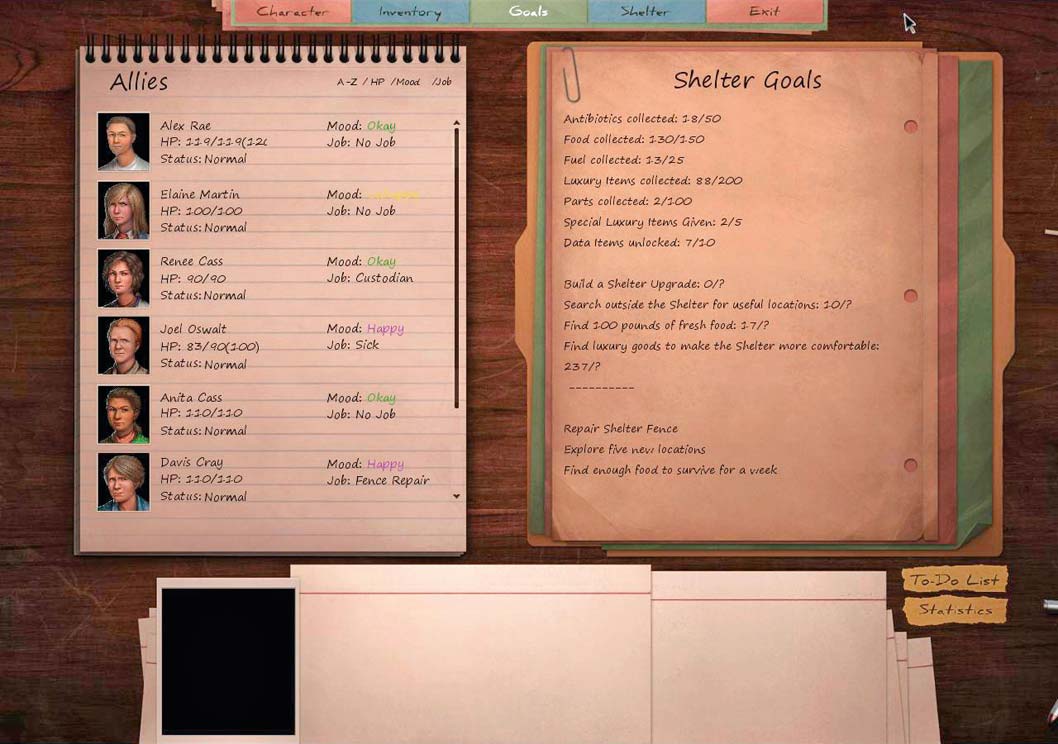 Character Inventory Goals Shelter Exit
Allies
A-Z / HP /Mood /Job
Alex Rae
Mood: Okay
HP: 119/119(12
Job: No Job
Status: Normal
Elaine Martin
Mood:
HP: 100/100
Job: No Job
Status: Normal
Renee Cass
Mood: Okay
HP: 90/90
Job: Custodian
Status: Normal
Joel Oswalt
Mood: Happy
HP: 83/90(100)
Job: Sick
Status: Normal
Anita Cass
Mood: Okay
HP: 110/110
Job: No Job
Status: Normal
Davis Cray
Mood: Happy
HP: 110/110
Job: Fence Repair
Status: Normal
Shelter Goals
Antibiotics collected: 18/50
Food collected: 130/150
Fuel collected: 13/25
Luxury Items collected: 88/200
Parts collected: 2/100
Special Luxury Items Given: 2/5
Data Items unlocked: 7/10
Build a Shelter Upgrade: 0/?
Search outside the Shelter for useful locations: 10/?
Find 100 pounds of fresh food: 17/?
Find luxury goods to make the Shelter more comfortable:
237/?
----------
Repair Shelter Fence
Explore five new locations
Find enough food to survive for a week
To-Do List
Statistics